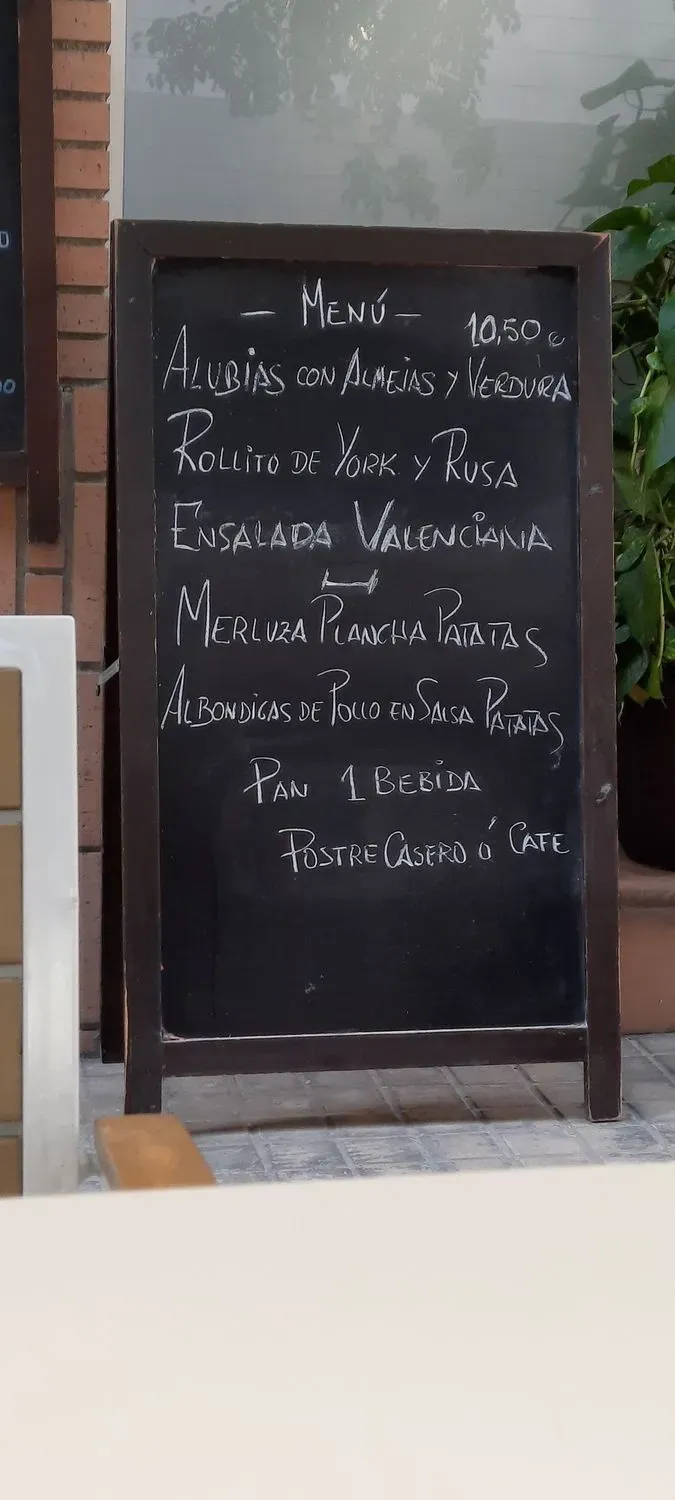 — MENÚ —
10,50 €
ALUBIAS CON ALMEJAS Y VERDURA
ROLLITO DE YORK Y RUSA
ENSALADA VALENCIANA
MERLUZA PLANCHA PATATAS
ALBONDIGAS DE POLLO EN SALSA PATATAS
PAN 1 BEBIDA
POSTRE CASERO Ó CAFE